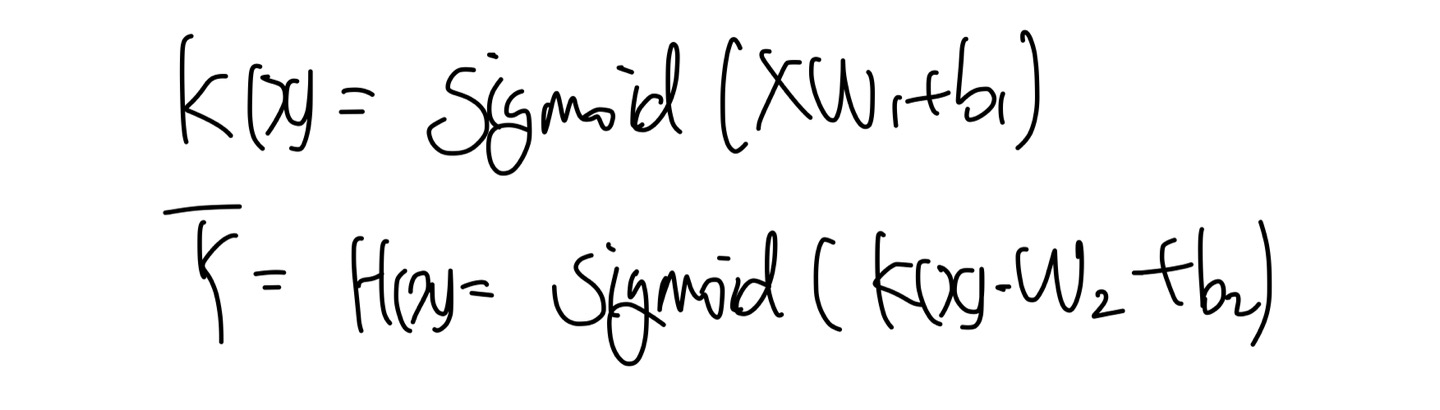 K(x) = Sigmoid (XW₁+b₁)
Ȳ = H(x) = Sigmoid ( K(x)·W₂ +b₂)